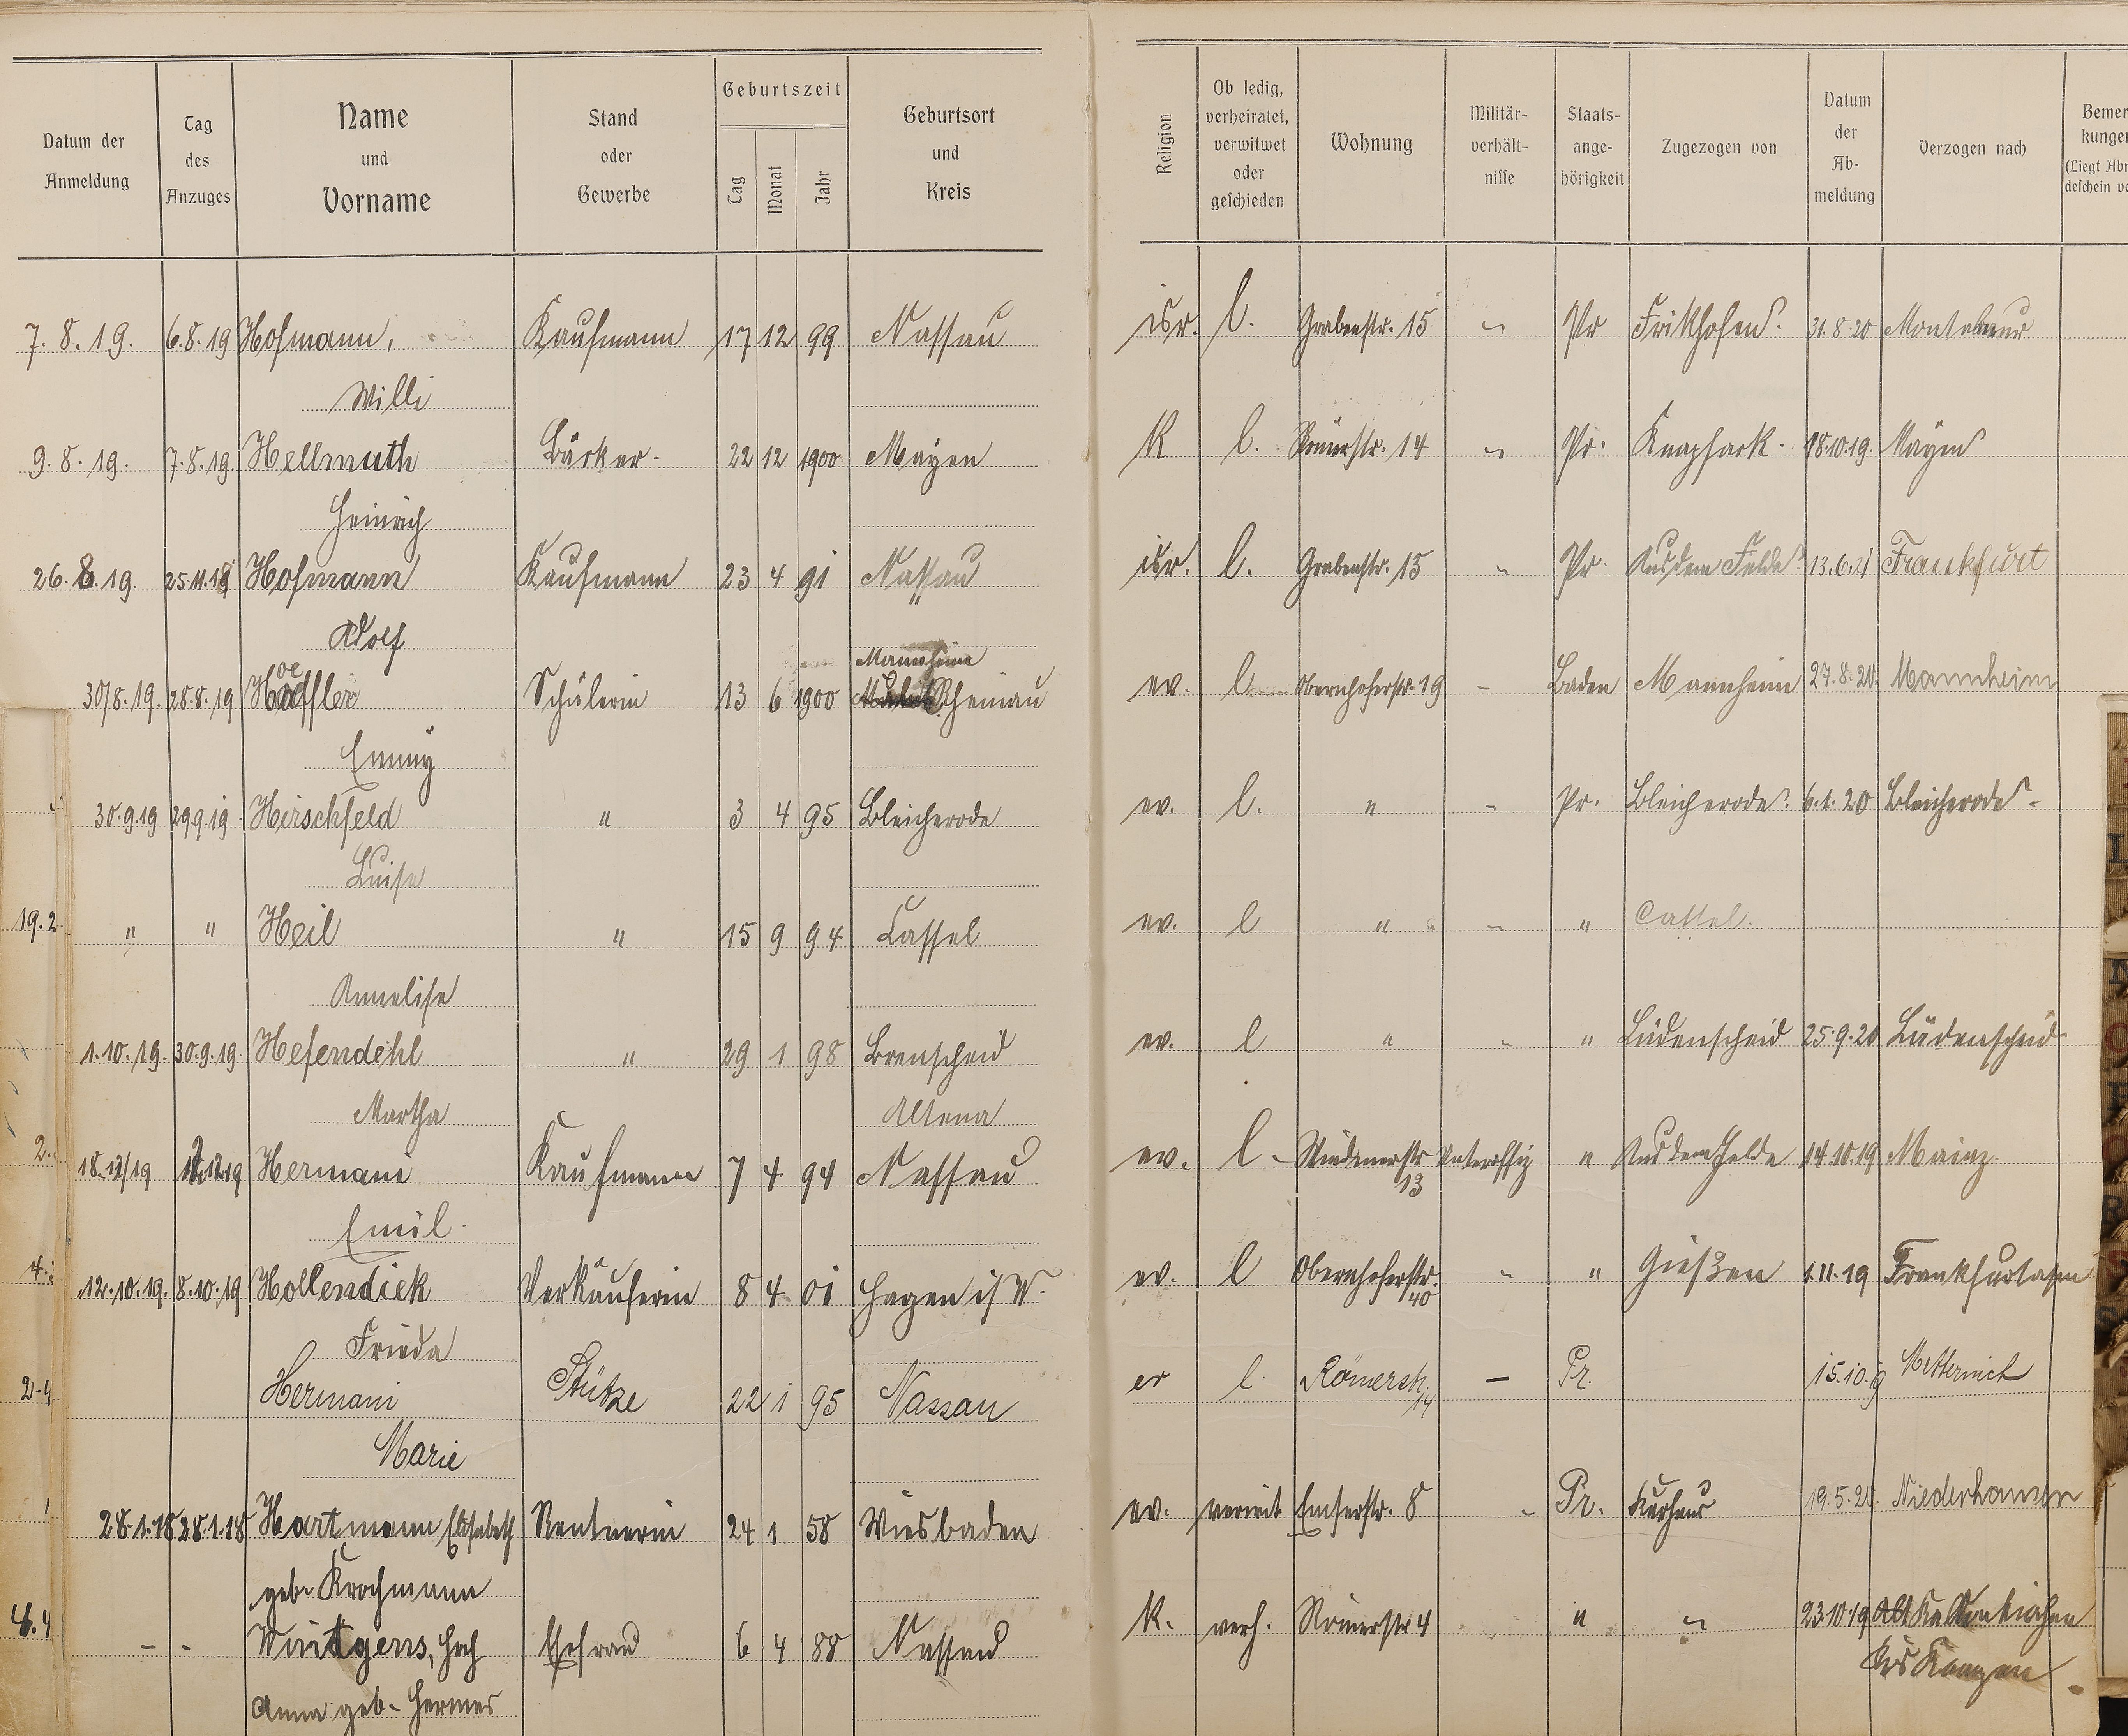 Datum der Anmeldung | Tag des Anzuges | Name und Vorname | Stand oder Gewerbe | Geburtszeit Tag Monat Jahr | Geburtsort und Kreis | Religion | Ob ledig, verheiratet, verwitwet oder geschieden | Wohnung | Militär-verhält-nisse | Staats-ange-hörigkeit | Zugezogen von | Datum der Ab-meldung | Verzogen nach | Bemer kungen (Liegt Abm deschein vo
7. 8. 19. 6.8.19 Hofmann, Kaufmann 17 12 99 Nassau isr. l. Grabenstr. 15 " Pr Frikhofen. 31.8.20 Montabaur
Willi
9. 8. 19. 7.8.19 Hellmuth Bäcker- 22 12 1900 Mayen K l. Römerstr. 14 " Pr. 18.10.19. Mayen
Heinrich
26. 8. 19. Hofmann Kaufmann 23 4 91 Nassau isr. l. Grabenstr. 15 " Pr. Aus dem Felde 13.6.21 Frankfurt
Adolf
Mannheim
30/8. 19. 28.8.19 Schülerin 13 6 1900 Rheinau ev. l. Obernhoferstr. 19 - Baden Mannheim 27.8.20. Mannheim
Emmy
30.9.19 29.9.19 Hirschfeld " 3 4 95 Bleicherode ev. l. " " Pr. Bleicherode. 6.1.20 Bleicherode.
Luise
" " Heil " 15 9 94 Cassel ev. l " " " Cassel.
Annelise
1.10.19. 30.9.19. Hefendehl " 29 1 98 Brenscheid ev. l " " " Lüdenscheid 25.9.20 Lüdenscheid
Martha Altena
18.12/19 Hermani Kaufmann 7 4 94 Nassau ev. l. Windenerstr Unteroffiz " Aus dem Felde 14.10.19 Mainz.
13
Emil.
12.10.19. 8.10.19 Hollendiek Verkäuferin 8 4 01 Hagen i/W. ev. l Obernhoferstr. " " Gießen 1.11.19
40
Frieda
Hermani Stütze 22 1 95 Nassau ev l. Römerstr. — Pr. 15.10.19 Metternich
14
Marie
28.1.18 28.1.18 Hartmann, Elisabeth Rentnerin 24 1 58 Wiesbaden ev. verwit Emserstr. 8 " Pr. Kurhaus 19.5.20. Niederhausen
geb. Krochmann
- - Wintgens, Ehefrau 6 4 88 Nassau K. verh. Römerstr 4 " " " 23.10.19 Kaldenkirchen
Krs Kempen
Anna geb. Hermes